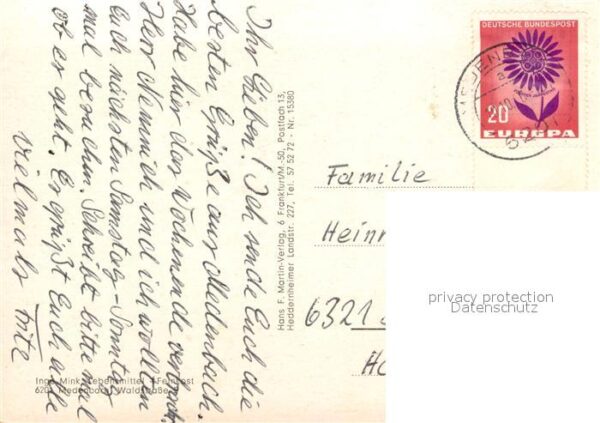 Ihr Lieben! Ich sende Euch die
besten Grüße aus Medenbach.
Habe hier das Wochenende verbracht.
Herr Nemnich und ich wollten
Euch nächsten Samstag-Sonntag
mal besuchen. Schreibt bitte mal
ob er geht. Er grüßt Euch alle
vielmals
Hans F. Martin-Verlag, 6 Frankfurt/M-50, Postfach 13,
Heddernheimer Landstr. 227, Tel. 57 52 72 - Nr. 15380
Lebensmittel
DEUTSCHE BUNDESPOST
20
EUROPA
Familie
Heinr
6321
privacy protection
Datenschutz